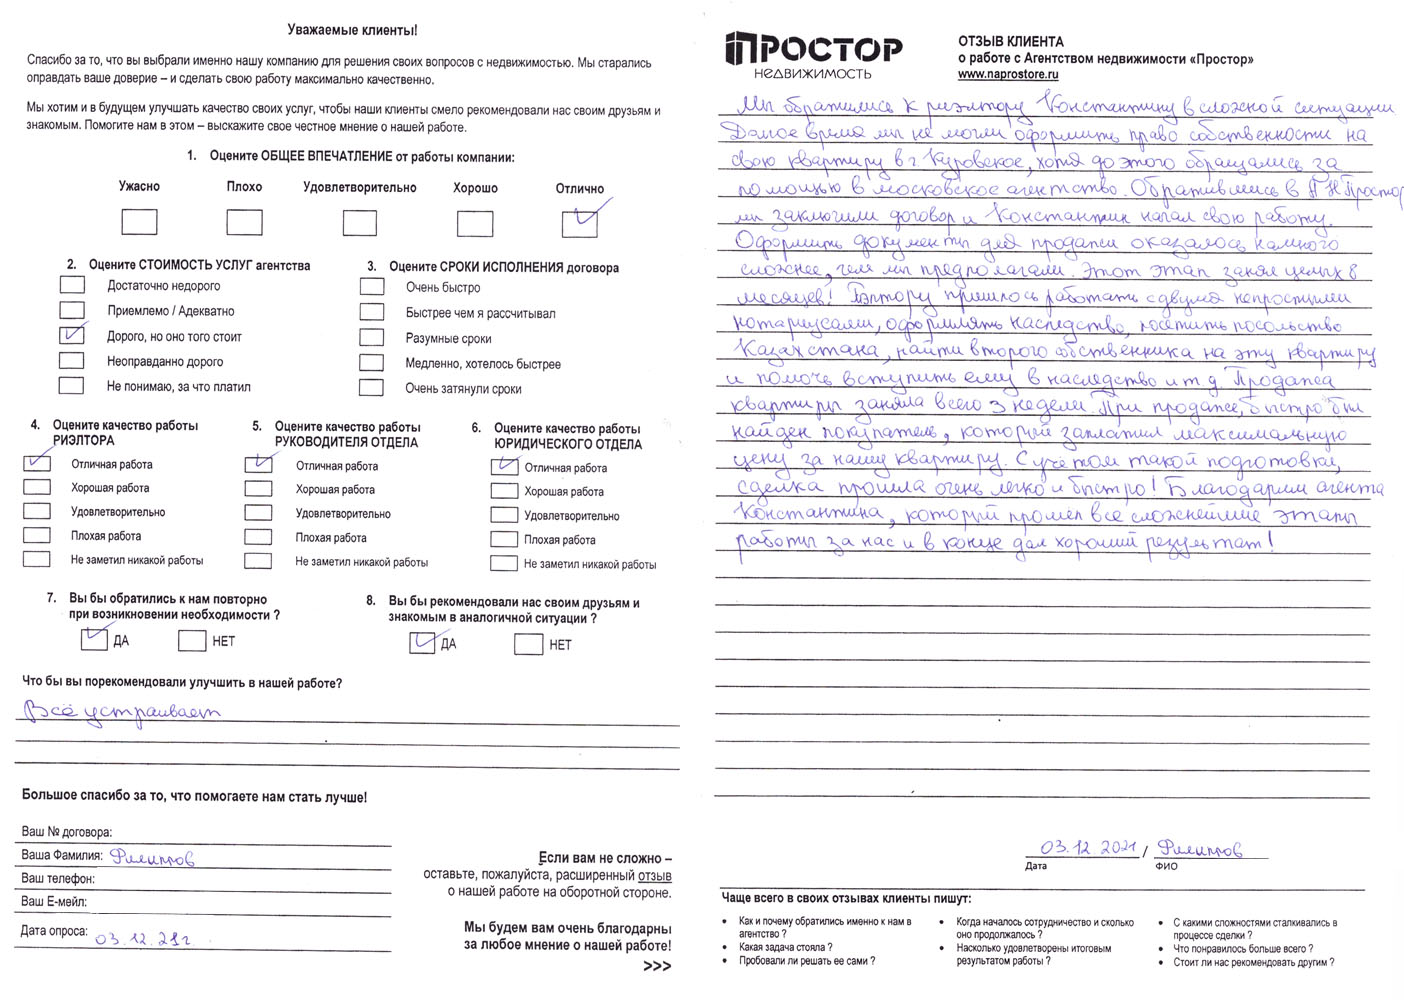 Уважаемые клиенты!
Спасибо за то, что вы выбрали именно нашу компанию для решения своих вопросов с недвижимостью. Мы старались
оправдать ваше доверие – и сделать свою работу максимально качественно.
Мы хотим и в будущем улучшать качество своих услуг, чтобы наши клиенты смело рекомендовали нас своим друзьям и
знакомым. Помогите нам в этом – выскажите свое честное мнение о нашей работе.
1. Оцените ОБЩЕЕ ВПЕЧАТЛЕНИЕ от работы компании:
Ужасно Плохо Удовлетворительно Хорошо Отлично
2. Оцените СТОИМОСТЬ УСЛУГ агентства
Достаточно недорого
Приемлемо / Адекватно
Дорого, но оно того стоит
Неоправданно дорого
Не понимаю, за что платил
3. Оцените СРОКИ ИСПОЛНЕНИЯ договора
Очень быстро
Быстрее чем я рассчитывал
Разумные сроки
Медленно, хотелось быстрее
Очень затянули сроки
4. Оцените качество работы
РИЭЛТОРА
Отличная работа
Хорошая работа
Удовлетворительно
Плохая работа
Не заметил никакой работы
5. Оцените качество работы
РУКОВОДИТЕЛЯ ОТДЕЛА
Отличная работа
Хорошая работа
Удовлетворительно
Плохая работа
Не заметил никакой работы
6. Оцените качество работы
ЮРИДИЧЕСКОГО ОТДЕЛА
Отличная работа
Хорошая работа
Удовлетворительно
Плохая работа
Не заметил никакой работы
7. Вы бы обратились к нам повторно
при возникновении необходимости ?
ДА НЕТ
8. Вы бы рекомендовали нас своим друзьям и
знакомым в аналогичной ситуации ?
ДА НЕТ
Что бы вы порекомендовали улучшить в нашей работе?
Всё устраивает
Большое спасибо за то, что помогаете нам стать лучше!
Ваш № договора:
Ваша Фамилия: Филиппов
Ваш телефон:
Ваш Е-мейл:
Дата опроса: 03.12.21г
Если вам не сложно –
оставьте, пожалуйста, расширенный отзыв
о нашей работе на оборотной стороне.
Мы будем вам очень благодарны
за любое мнение о нашей работе!
>>>
ПРОСТОР
НЕДВИЖИМОСТЬ
ОТЗЫВ КЛИЕНТА
о работе с Агентством недвижимости «Простор»
www.naprostore.ru
Мы обратились к риэлтору Константину в сложной ситуации
Долгое время мы не могли оформить право собственности на
свою квартиру в г. Куровское, хотя до этого обращались за
помощью в московское агентство. Обратившись в АН Простор
мы заключили договор и Константин начал свою работу.
Оформить документы для продажи оказалось намного
сложнее, чем мы предполагали. Этот этап занял целых 8
месяцев! Риэлтору пришлось работать с двумя непростыми
нотариусами, оформлять наследство, посетить посольство
Казахстана, найти второго собственника на эту квартиру
и помочь вступить ему в наследство и т д. Продажа
квартиры заняла всего 3 недели. При продаже, быстро был
найден покупатель, который заплатил максимальную
цену за нашу квартиру. С учетом такой подготовки,
сделка прошла очень легко и быстро! Благодарим агента
Константина, который прошел все сложнейшие этапы
работы за нас и в конце дал хороший результат!
03.12.2021 / Филиппов
Дата ФИО
Чаще всего в своих отзывах клиенты пишут:
• Как и почему обратились именно к нам в
агентство ?
• Какая задача стояла ?
• Пробовали ли решать ее сами ?
• Когда началось сотрудничество и сколько
оно продолжалось ?
• Насколько удовлетворены итоговым
результатом работы ?
• С какими сложностями сталкивались в
процессе сделки ?
• Что понравилось больше всего ?
• Стоит ли нас рекомендовать другим ?